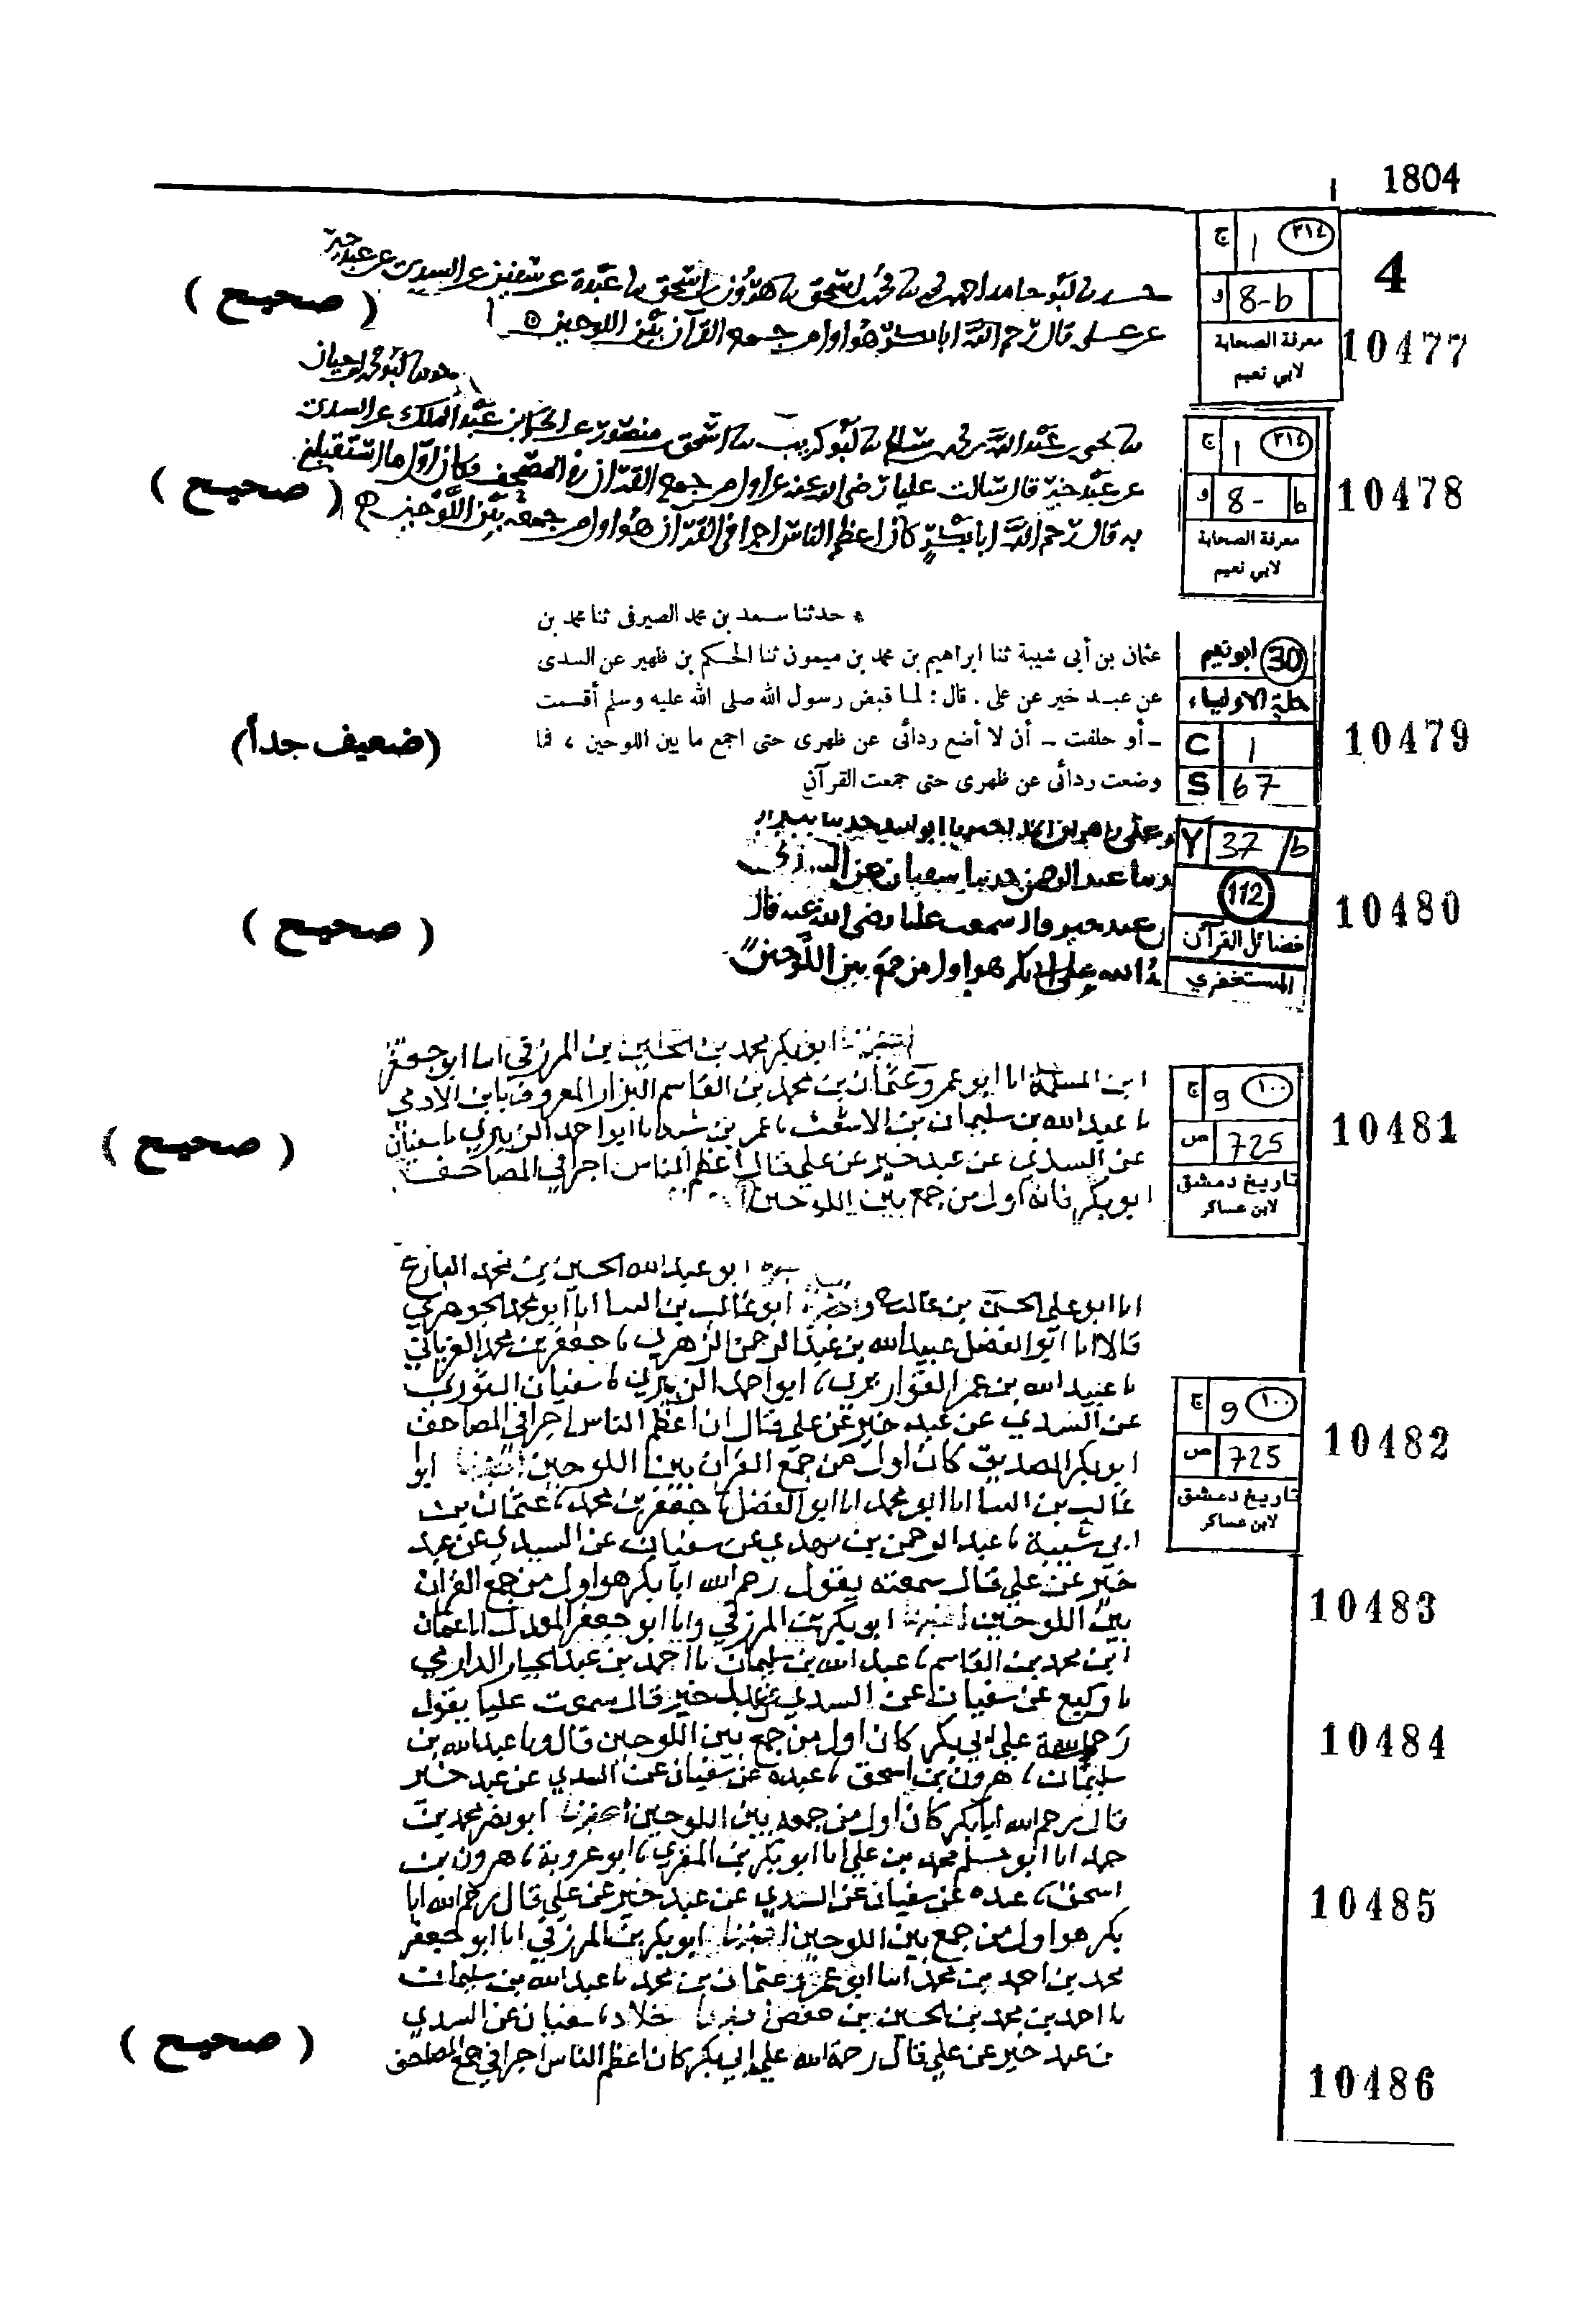 1804
4
٣١٤ ١ ج
8-b و
معرفة الصحابة
لابي نعيم
10477
عبد خير
( صحيح )
عن علي قال رحم الله ابا بكر هو اول من جمع القرآن بين اللوحين
٣١٤ ١ ج
b 8- و
معرفة الصحابة
لابي نعيم
10478
منصور عن الحكم بن عبد الملك عن السدي
عن عبد خير قال سالت عليا رضي الله عنه عن اول من جمع القرآن في المصحف وكان اول ما استقبلني
به قال رحم الله ابا بكر كان اعظم الناس اجرا في القرآن هو اول من جمعه بين اللوحين
( صحيح )
* حدثنا سعد بن محمد الصيرفى ثنا محمد بن
عثمان بن أبى شيبة ثنا ابراهيم بن محمد بن ميمون ثنا الحكم بن ظهير عن السدى
عن عبد خير عن على . قال : لما قبض رسول الله صلى الله عليه وسلم أقسمت
ـ أو حلفت ـ أن لا أضع ردائى عن ظهرى حتى اجمع ما بين اللوحين ، فما
وضعت ردائى عن ظهرى حتى جمعت القرآن
30 ابو نعيم
حلية الاولياء
C 1
S 67
10479
(ضعيف جداً)
Y 37/b
112
فضائل القرآن
المستغفري
10480
عبد الرحمن حدثنا سفيان عن
عبد خير قال سمعت عليا رضي الله عنه قال
الله على ابي بكر هو اول من جمع بين اللوحين
( صحيح )
ابو بكر محمد بن الحسين بن المرزقي انا ابو جعفر
ابن المسلمة انا ابو عمرو عثمان بن محمد بن القاسم البزار المعروف بابن الادمي
نا عبد الله بن سليمان بن الاشعث نا عمر بن شبة نا ابو احمد الزبيري نا سفيان
عن السدي عن عبد خير عن علي قال اعظم الناس اجرا في المصاحف
ابو بكر فانه اول من جمع بين اللوحين
١٠٠ 9 ج
725 ص
تاريخ دمشق
لابن عساكر
10481
( صحيح )
ابو عبد الله الحسين بن محمد البارع
انا ابو علي الحسن بن غالب ابو غالب بن البنا انا ابو محمد الجوهري
قالا انا ابو الفضل عبيد الله بن عبد الرحمن الزهري نا جعفر بن محمد الفريابي
نا عبيد الله بن عمر القواريري نا ابو احمد الزبيري نا سفيان الثوري
عن السدي عن عبد خير عن علي قال ان اعظم الناس اجرا في المصاحف
ابو بكر الصديق كان اول من جمع القران بين اللوحين اخبرنا ابو
غالب بن البنا انا ابو محمد انا ابو الفضل نا جعفر بن محمد نا عثمان بن
ابي شيبة نا عبد الرحمن بن مهدي عن سفيان عن السدي عن عبد
خير عن علي قال سمعته يقول رحم الله ابا بكر هو اول من جمع القران
بين اللوحين اخبرنا ابو بكر بن المرزقي وانا ابو جعفر المعدل انا عثمان
ابن محمد بن القاسم نا عبد الله بن سليمان نا احمد بن عبد الجبار الدارمي
نا وكيع عن سفيان عن السدي عن عبد خير قال سمعت عليا يقول
رحمة الله على ابي بكر كان اول من جمع بين اللوحين قال ونا عبد الله بن
سليمان نا هرون بن اسحق نا عبدة عن سفيان عن السدي عن عبد خير
قال رحم الله ابا بكر كان اول من جمعه بين اللوحين اخبرنا ابو نصر محمد بن
حمد انا ابو مسلم محمد بن علي انا ابو بكر بن المقري نا ابو عروبة نا هرون بن
اسحق نا عبده عن سفيان عن السدي عن عبد خير عن علي قال رحم الله ابا
بكر هو اول من جمع بين اللوحين اخبرنا ابو بكر بن المرزقي انا ابو جعفر
محمد بن احمد بن محمد انا ابو عمرو عثمان بن محمد نا عبد الله بن سليمان
نا احمد بن محمد بن الحسين بن حفص خلاد نا سفيان عن السدي
عن عبد خير عن علي قال رحمة الله على ابي بكر كان اعظم الناس اجرا في جمع المصاحف
١٠٠ 9 ج
725 ص
تاريخ دمشق
لابن عساكر
10482
10483
10484
10485
( صحيح )
10486